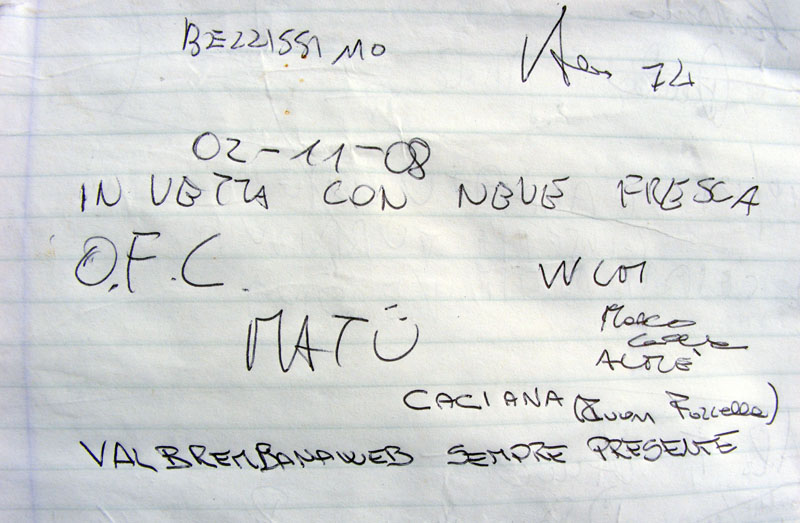 BEZZISSIMO
74
02-11-08
IN VETTA CON NEVE FRESCA
O.F.C.
MATÙ
Marco
CACIANA (Ivan Forcella)
VALBREMBANAWEB SEMPRE PRESENTE